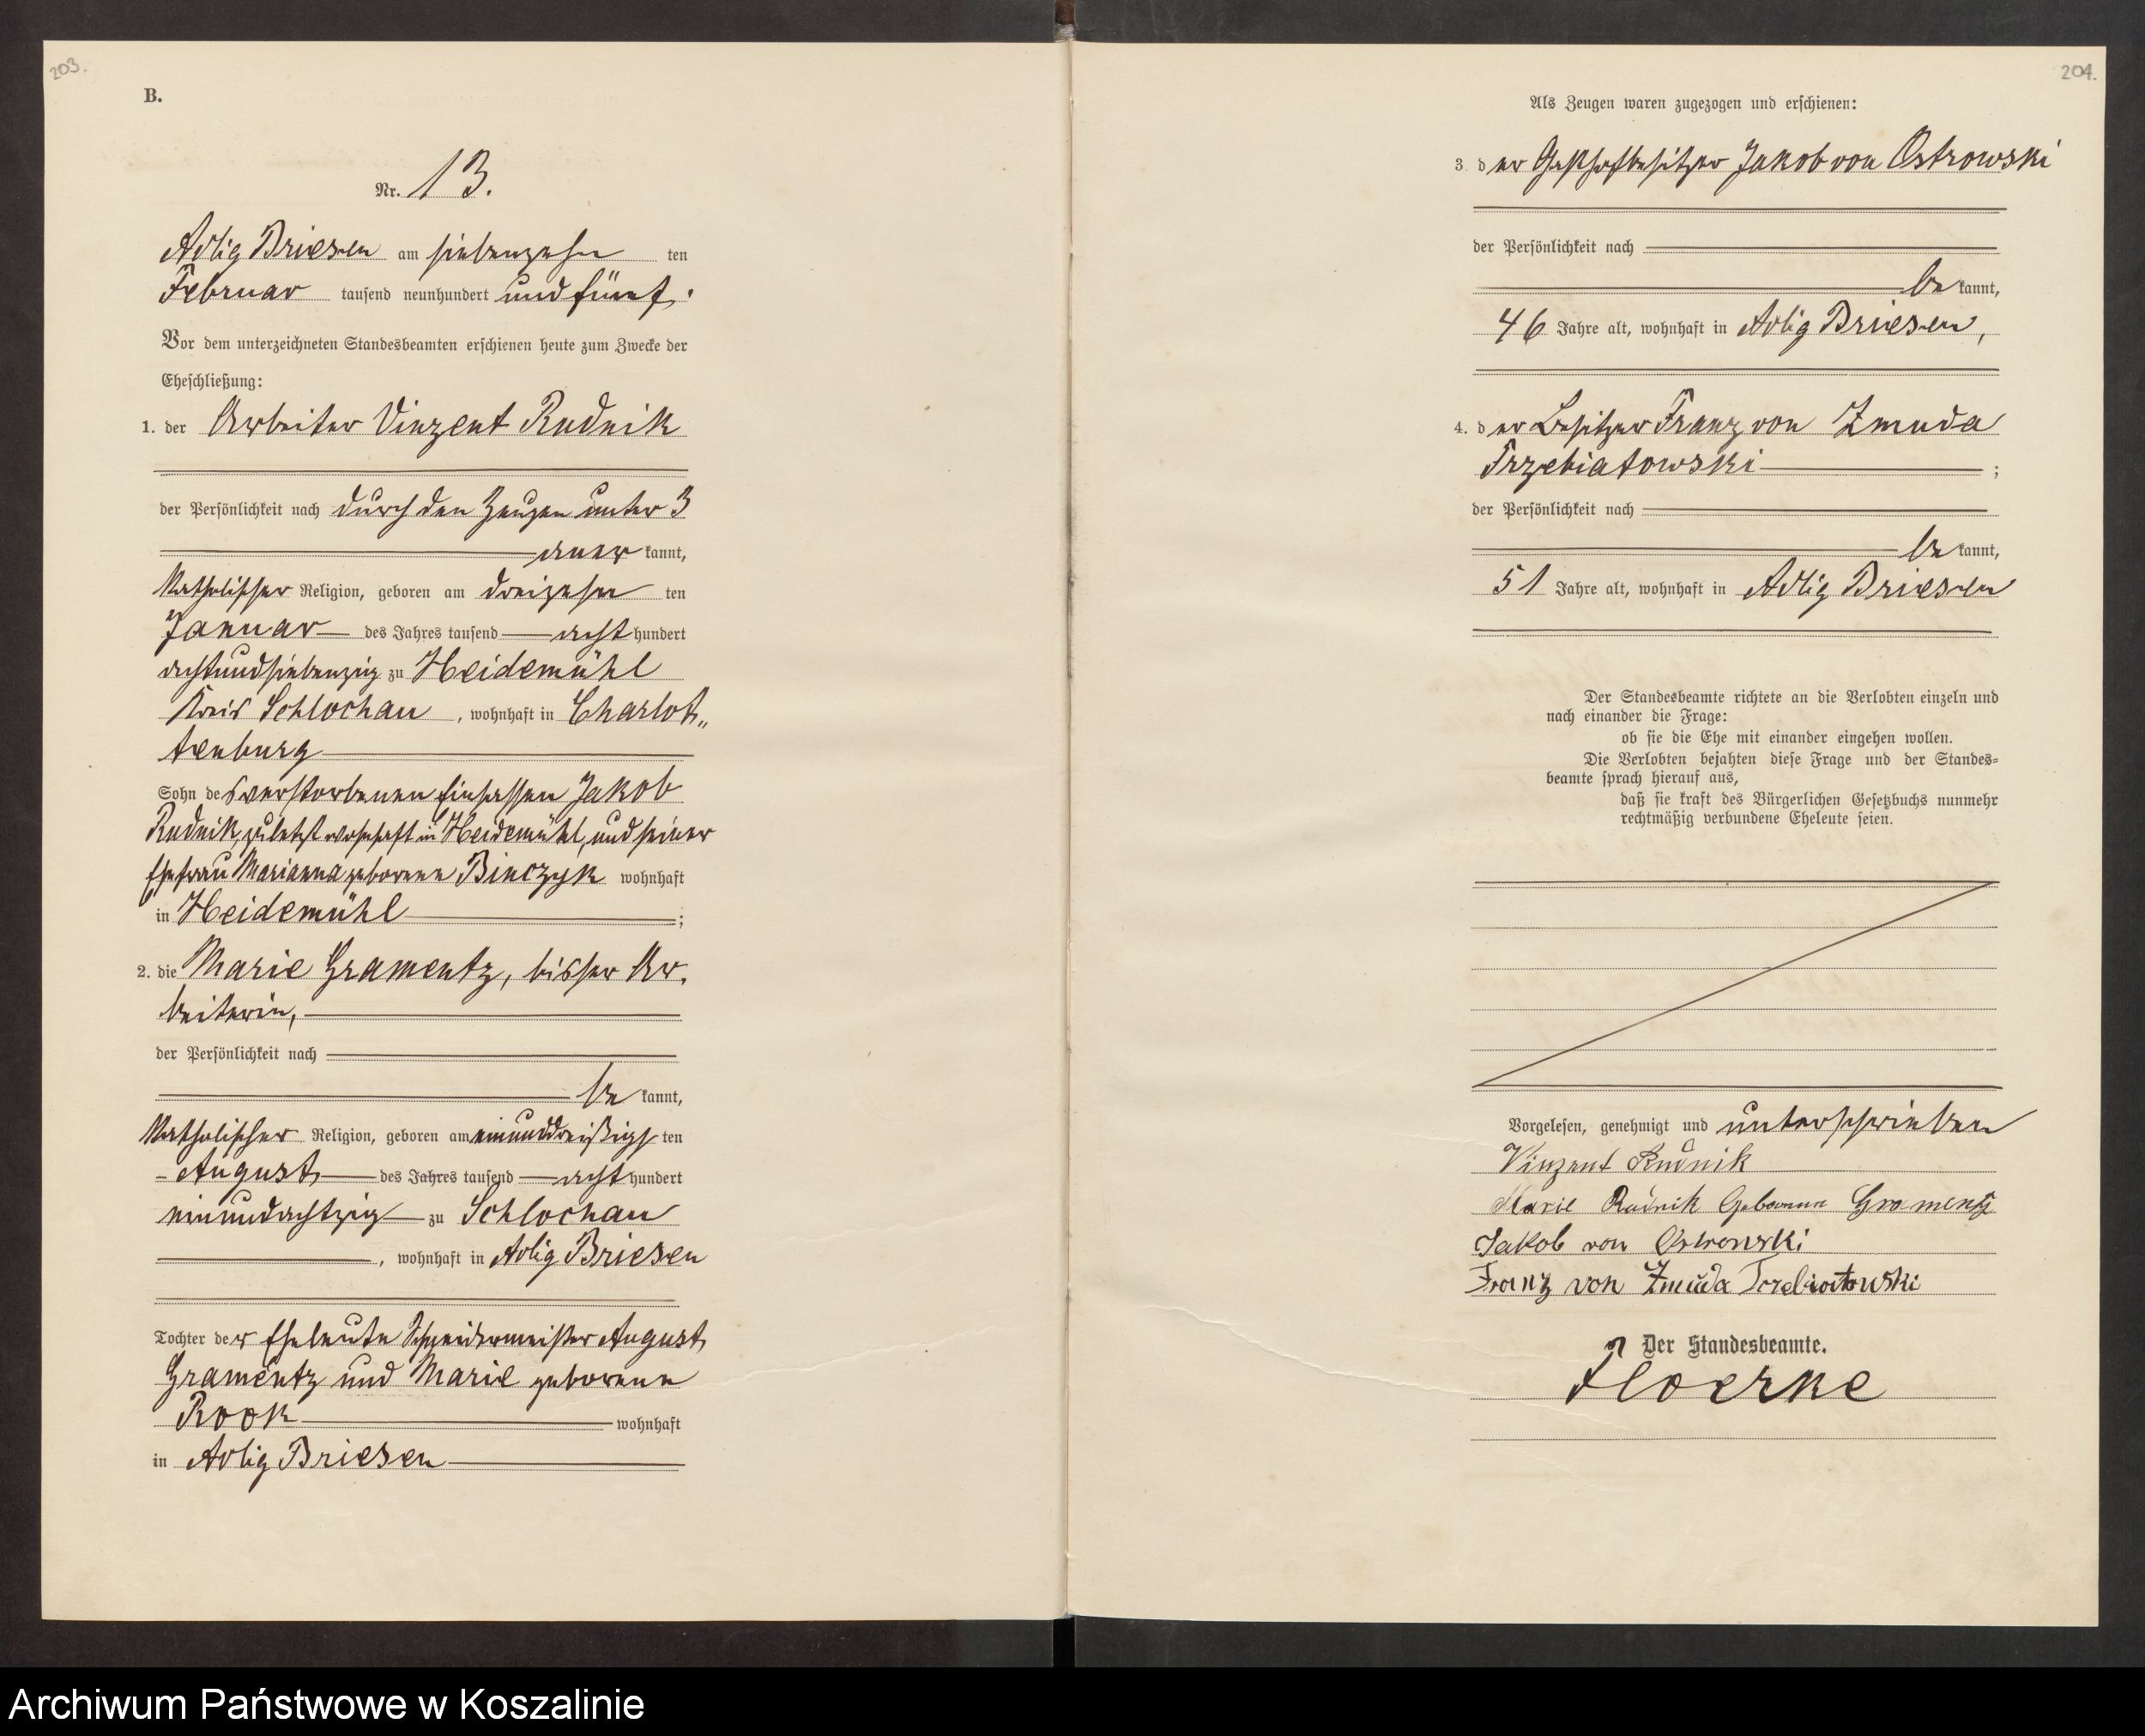 203.
B.
Nr. 13.
Adlig Briesen am siebenzehn ten
Februar tausend neunhundert und fünf.
Vor dem unterzeichneten Standesbeamten erschienen heute zum Zwecke der
Eheschließung:
1. der Arbeiter Vinzent Rudnik
der Persönlichkeit nach durch den Zeugen unter 3
aner kannt,
katholischer Religion, geboren am dreizehn ten
Januar des Jahres tausend acht hundert
achtundsiebenzig zu Heidemühl
Kreis Schlochau, wohnhaft in Charlot„
tenburg
Sohn des verstorbenen Einsassen Jakob
Rudnik, zuletzt wohnhaft in Heidemühl, und seiner
Ehefrau Marianna geborene Binczyk wohnhaft
in Heidemühl ;
2. die Marie Gramentz, bisher Ar-
beiterin,
der Persönlichkeit nach
be kannt,
katholischer Religion, geboren am einunddreißigs ten
August des Jahres tausend acht hundert
einundachtzig zu Schlochau
, wohnhaft in Adlig Briesen
Tochter der Eheleute Schneidermeister August
Gramentz und Marie geborene
Rook wohnhaft
in Adlig Briesen
204.
Als Zeugen waren zugezogen und erschienen:
3. der Gasthofbesitzer Jakob von Ostrowski
der Persönlichkeit nach
be kannt,
46 Jahre alt, wohnhaft in Adlig Briesen,
4. der Besitzer Franz von Zmuda
Trzebiatowski ;
der Persönlichkeit nach
be kannt,
51 Jahre alt, wohnhaft in Adlig Briesen
Der Standesbeamte richtete an die Verlobten einzeln und
nach einander die Frage:
ob sie die Ehe mit einander eingehen wollen.
Die Verlobten bejahten diese Frage und der Standes-
beamte sprach hierauf aus,
daß sie kraft des Bürgerlichen Gesetzbuchs nunmehr
rechtmäßig verbundene Eheleute seien.
Vorgelesen, genehmigt und unterschrieben
Vinzent Rudnik
Marie Rudnik Geborene Gramentz
Jakob von Ostrowski
Franz von Zmuda Trzebiatowski
Der Standesbeamte.
Floerke
Archiwum Państwowe w Koszalinie